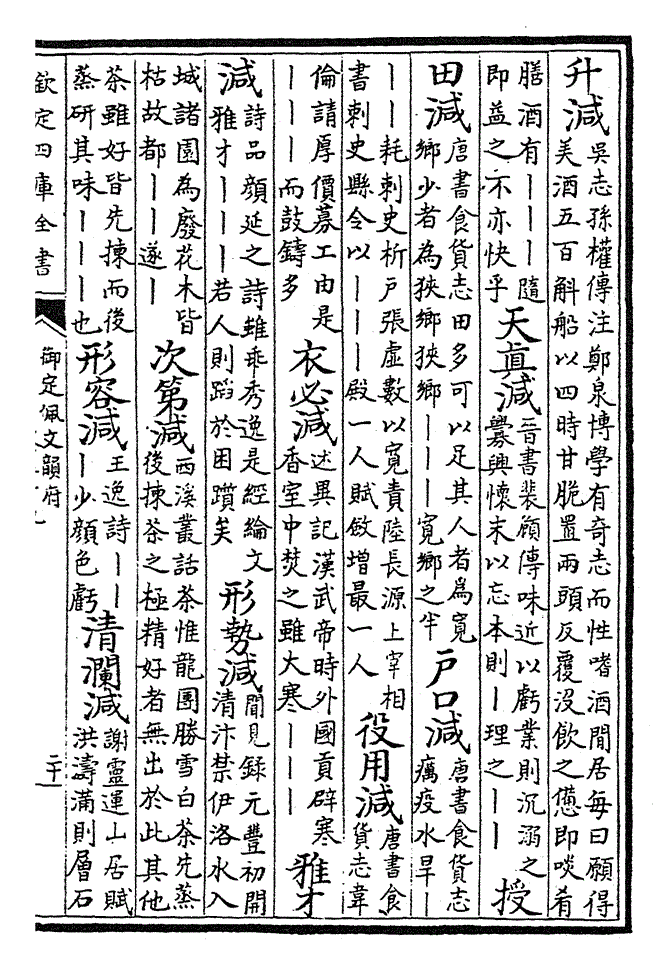 升減吳志孫權傳注鄭泉博學有奇志而性嗜酒閒居每曰願得
美酒五百斛船以四時甘脆置兩頭反覆沒飲之憊即啖肴
膳酒有丨丨丨隨
即益之不亦快乎
天真減晉書裴頠傳味近以虧業則沉溺之
釁興懷末以忘本則丨理之丨丨
授
田減唐書食貨志田多可以足其人者為寛
鄉少者為狹鄉狹鄉丨丨丨寛鄉之半
戸口減唐書食貨志
癘疫水旱丨
丨丨耗刺史析戸張虛數以寛責陸長源上宰相
書刺史縣令以丨丨丨殿一人賦斂增最一人
役用減唐書食
貨志韋
倫請厚價募工由是
丨丨丨而鼓鑄多
衣必減述異記漢武帝時外國貢辟寒
香室中焚之雖大寒丨丨丨
雅才
減詩品顔延之詩雖乖秀逸是經綸文
雅才丨丨丨若人則蹈於困躓矣
形勢減聞見錄元豐初開
清汴禁伊洛水入
城諸園為廢花木皆
枯故都丨丨遂丨
次第減西溪叢話茶惟龍團勝雪白茶先蒸
後揀茶之極精好者無出於此其他
茶雖好皆先揀而後
蒸研其味丨丨丨也
形容減王逸詩丨丨
丨少顔色虧
清瀾減謝靈運山居賦
洪濤滿則層石
欽定四庫全書
御定佩文韻府
二十